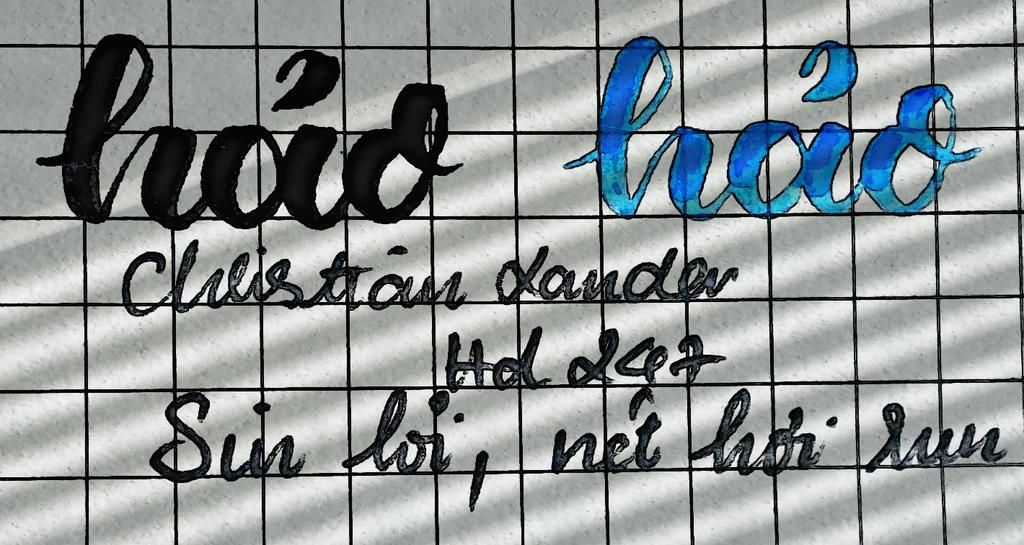 hảo hảo
Christian Xander
Hd 247
Sin lỗi, nết hơi run